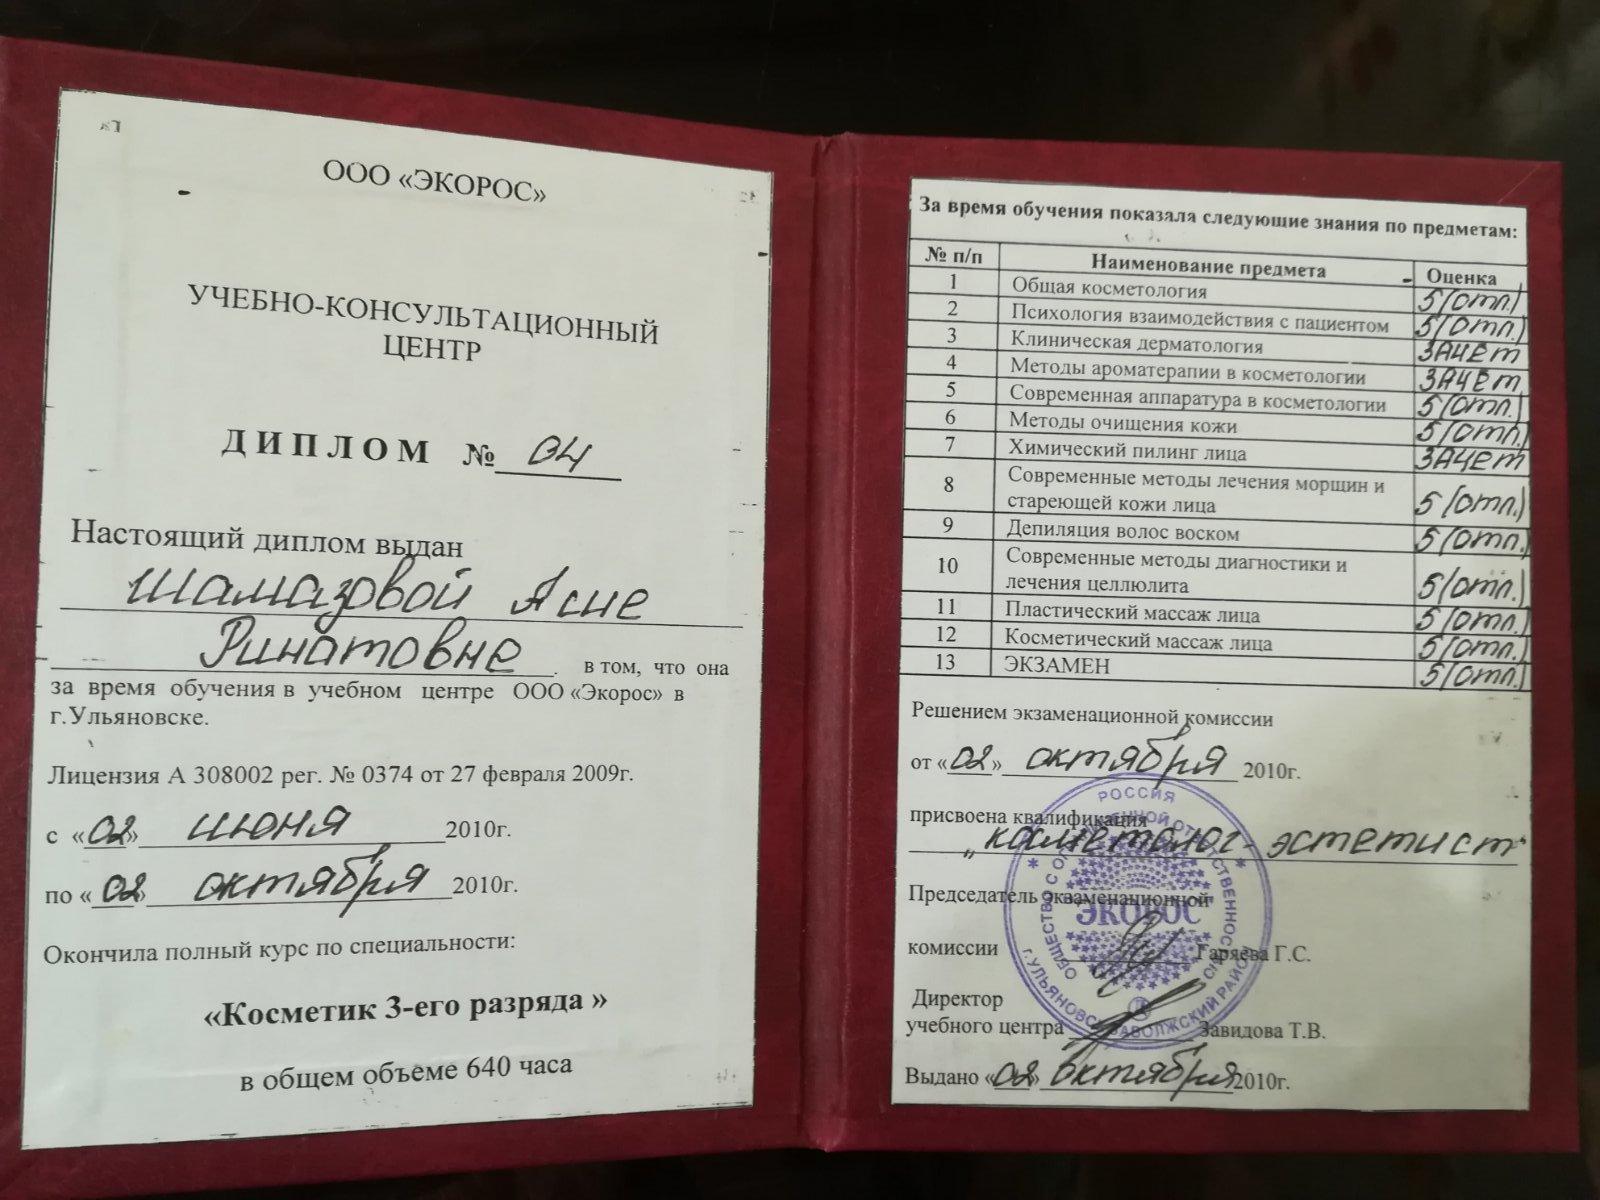 ООО «ЭКОРОС»
УЧЕБНО-КОНСУЛЬТАЦИОННЫЙ
ЦЕНТР
ДИПЛОМ № 04
Настоящий диплом выдан
Шамазовой Асие
Ринатовне. в том, что она
за время обучения в учебном центре ООО «Экорос» в
г.Ульяновске.
Лицензия А 308002 рег. № 0374 от 27 февраля 2009г.
с «02» июня 2010г.
по «02» октября 2010г.
Окончила полный курс по специальности:
«Косметик 3-его разряда »
в общем объеме 640 часа
За время обучения показала следующие знания по предметам:
№ п/п Наименование предмета Оценка
1 Общая косметология 5(отл.)
2 Психология взаимодействия с пациентом 5(отл.)
3 Клиническая дерматология зачет
4 Методы ароматерапии в косметологии зачет
5 Современная аппаратура в косметологии 5(отл.)
6 Методы очищения кожи 5(отл.)
7 Химический пилинг лица зачет
8 Современные методы лечения морщин и
стареющей кожи лица 5(отл.)
9 Депиляция волос воском 5(отл.)
10 Современные методы диагностики и
лечения целлюлита 5(отл.)
11 Пластический массаж лица 5(отл.)
12 Косметический массаж лица 5(отл.)
13 ЭКЗАМЕН 5(отл.)
Решением экзаменационной комиссии
от «02» октября 2010г.
присвоена квалификация
„косметолог-эстетист"
Председатель экзаменационной
комиссии Гаряева Г.С.
Директор
учебного центра Завидова Т.В.
Выдано «02» октября 2010г.
РОССИЯ
ОБЩЕСТВО С ОГРАНИЧЕННОЙ ОТВЕТСТВЕННОСТЬЮ
ЭКОРОС
г.УЛЬЯНОВСК ЗАВОЛЖСКИЙ РАЙОН